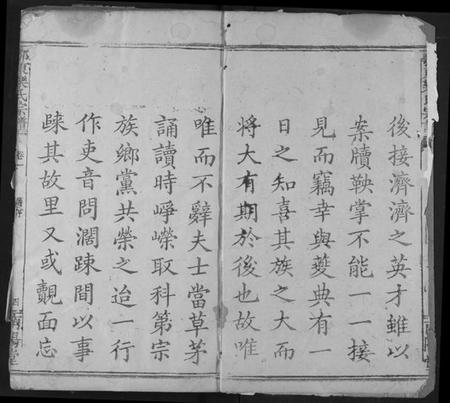 後接濟濟之英才雖以
案牘鞅掌不能一一接
見而竊幸與䕫典有一
日之知喜其族之大而
將大有期於後也故唯
唯而不辭夫士當草茅
誦讀時崢嶸取科第宗
族鄉黨共榮之迨一行
作吏音問濶踈間以事
踈其故里又或覿面忘
氏宗譜
卷一